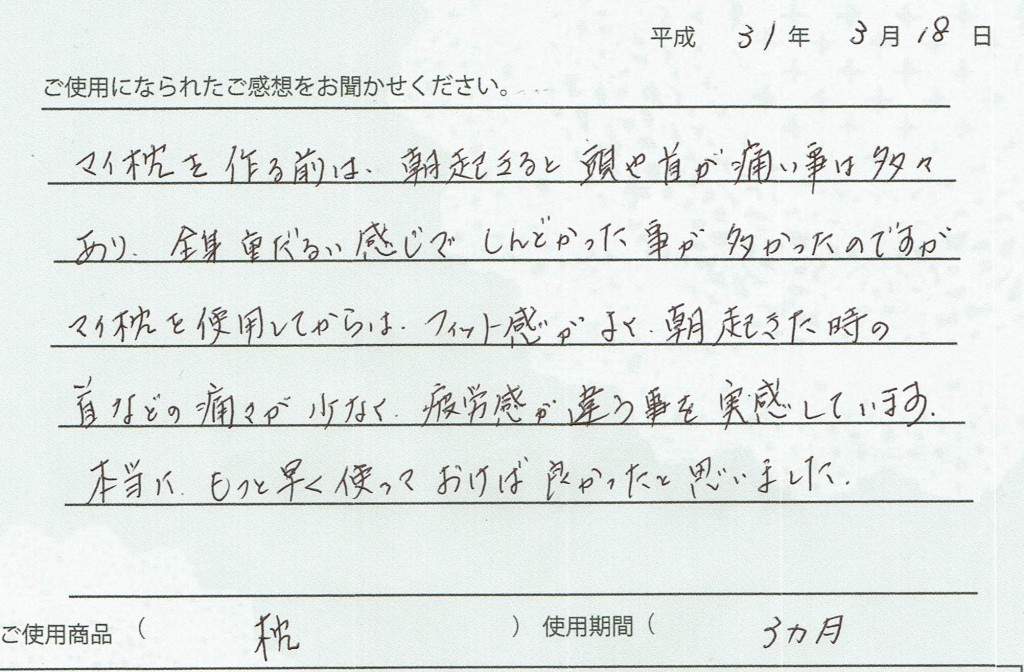 平成 31年 3月18日
ご使用になられたご感想をお聞かせください。
マイ枕を作る前は、朝起きると頭や首が痛い事は多々
あり、全身重だるい感じでしんどかった事が多かったのですが
マイ枕を使用してからは、フィット感がよく、朝起きた時の
首などの痛みが少なく、疲労感が違う事を実感しています。
本当に、もっと早く使っておけば良かったと思いました。
ご使用商品（ 枕 ）使用期間（ 3ヵ月